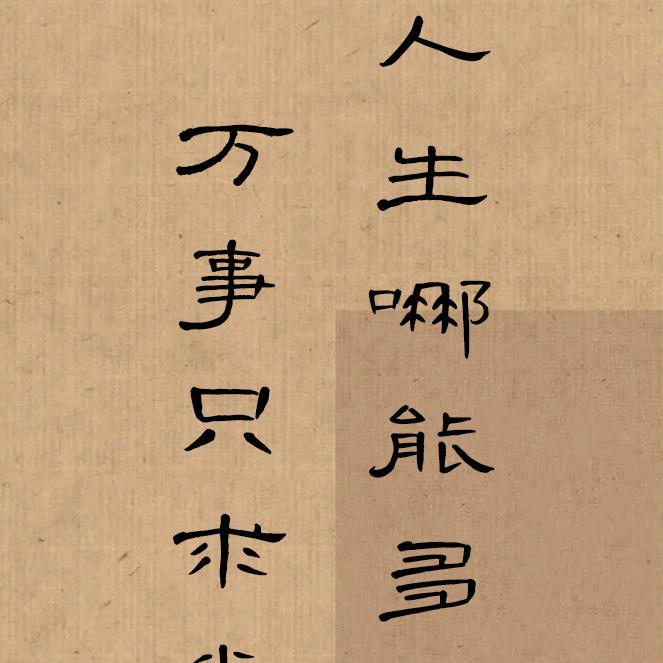 人生哪能多
万事只求